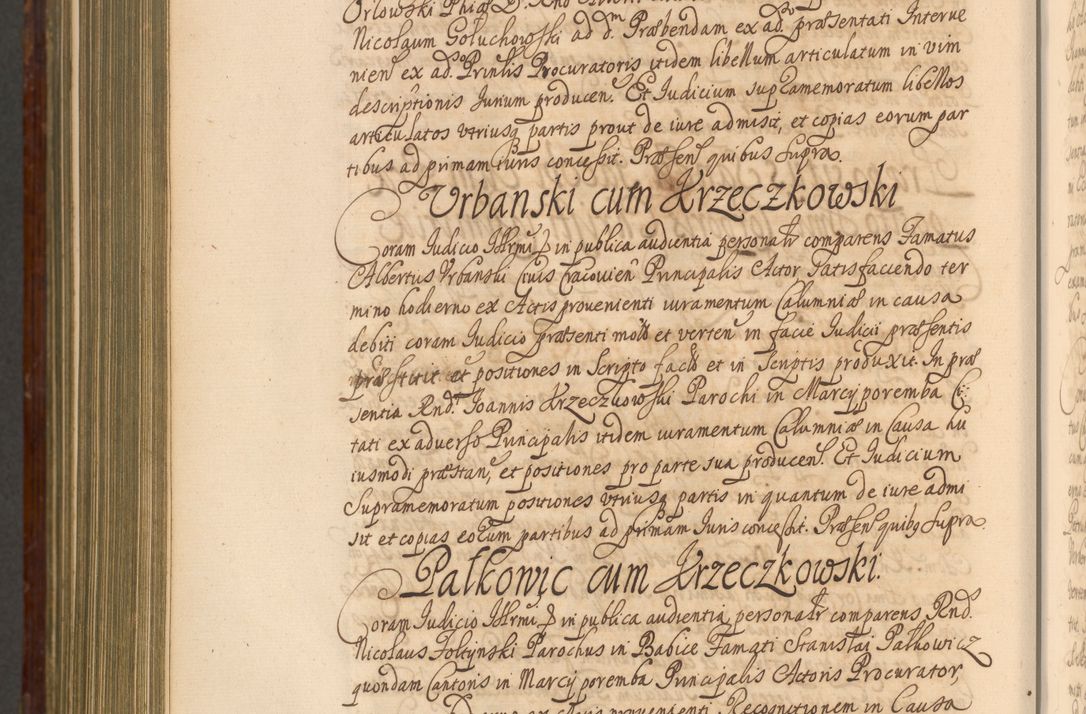 Nicolaum Goluchowski ad d.m Præbendam ex ad.o præsentati Interve
nien ex ad.o Prin̄lis Procuratoris itidem libellum articulatum in vim
descriptionis Iurium producen. Et Iudicium supramemoratum libellos
articulatos utriusq partis prout de iure admisit, et copias eorum par
tibus ad primam iuris concessit. Præsen quibus supra.
Urbanski cum Krzeczkowski
Coram Iudicio in publica audientia personalr comparens Famatus
Albertus Urbanski Civis Cracovien Principalis Actor Satisfaciendo ter
mino hodierno ex Actis provenienti iuramentum Calumniæ in causa
debiti coram Iudicio præsenti et verten in facie Iudicii præsentis
præstitit et positiones in Scripto et in Scriptis produxit. In præ
sentia Rnd. Ioannis Krzeczkowski Parochi in Marcyporemba Ci
tati ex adverso Principalis itidem iuramentum Calumniæ in Causa hu
iusmodi præstan, et positiones pro parte sua producen. Et Iudicium
Supramemoratum positiones utriusq partis in quantum de iure admi
sit et copias eorum partibus ad primam Iuris concessit. Præsen quibq supra.
Pałkowic cum Krzeczkowski.
Coram Iudicio in publica audientia personalr comparens Rnd.
Nicolaus Zołtynski Parochus in Babice Famati Stanislai Pałkowicz
quondam Cantoris in Marcyporemba Principalis Actoris Procurator
provenienti Recognitionem in Causa